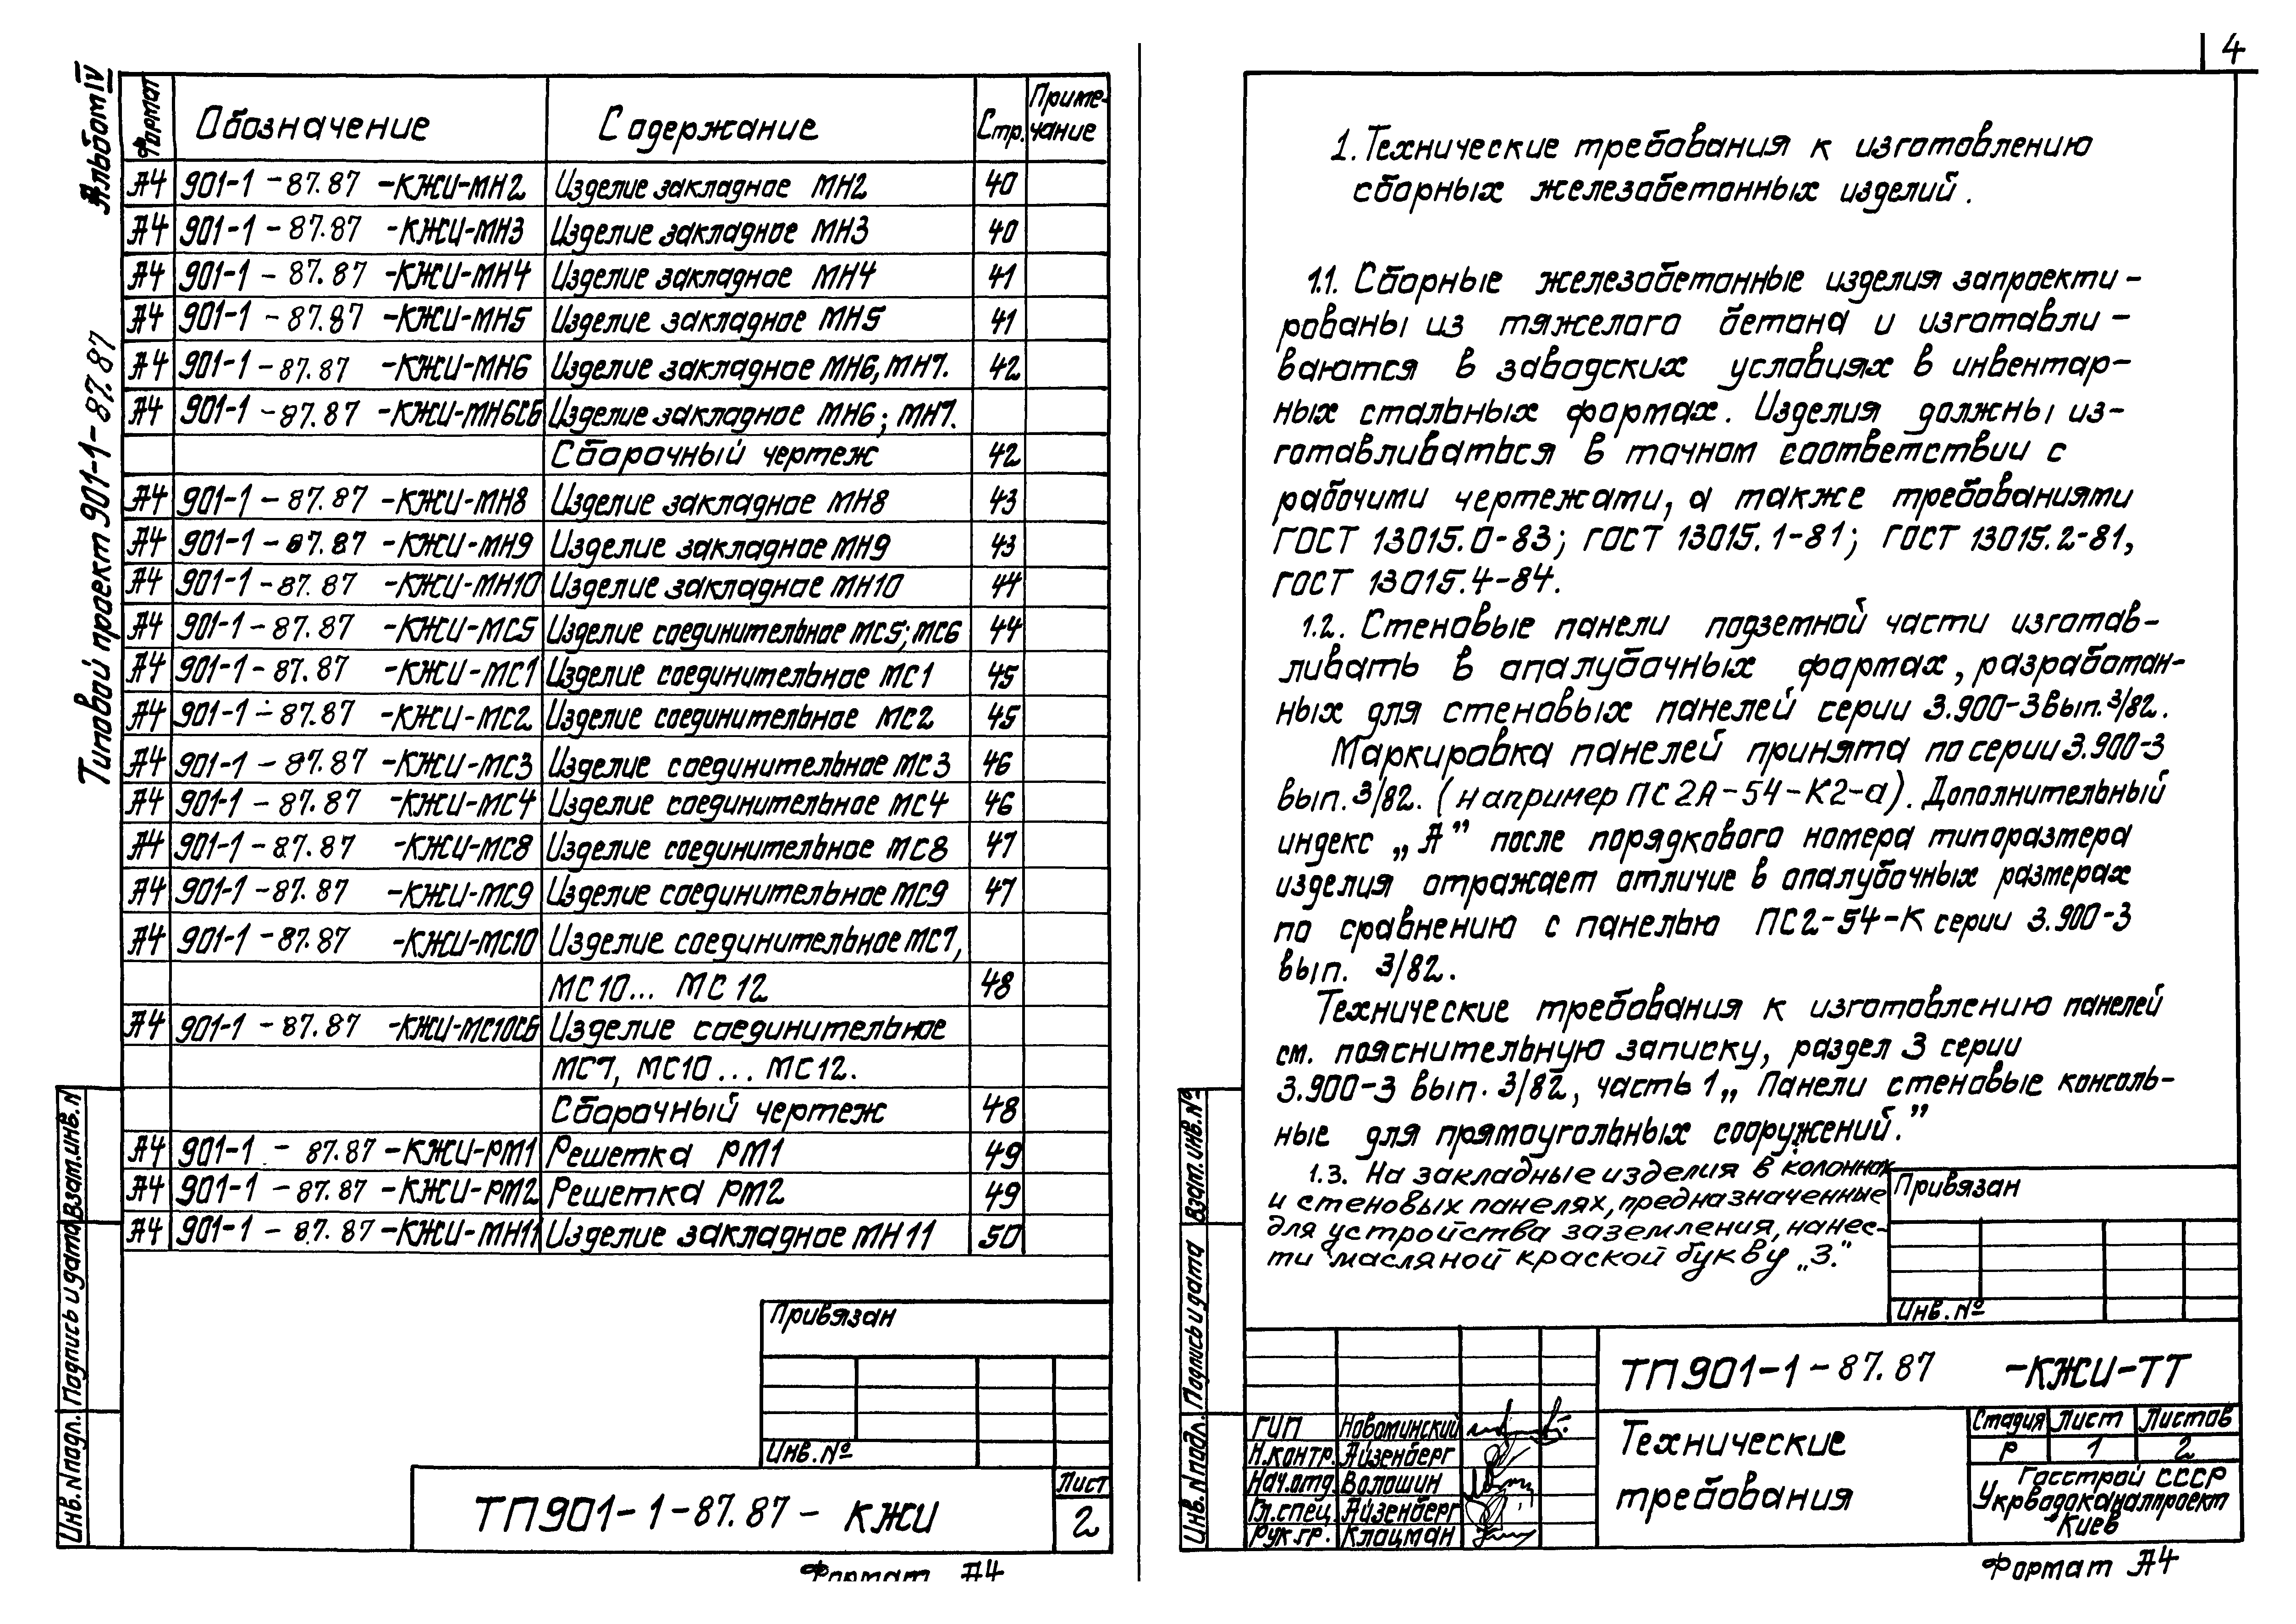 Альбом IV
Типовой проект 901-1-87.87
Формат Обозначение Содержание Стр. Приме-
чание
А4 901-1-87.87 -КЖИ-МН2 Изделие закладное МН2 40
А4 901-1-87.87 -КЖИ-МН3 Изделие закладное МН3 40
А4 901-1-87.87 -КЖИ-МН4 Изделие закладное МН4 41
А4 901-1-87.87 -КЖИ-МН5 Изделие закладное МН5 41
А4 901-1-87.87 -КЖИ-МН6 Изделие закладное МН6, МН7. 42
А4 901-1-87.87 -КЖИ-МН6СБ Изделие закладное МН6; МН7.
Сборочный чертеж 42
А4 901-1-87.87 -КЖИ-МН8 Изделие закладное МН8 43
А4 901-1-87.87 -КЖИ-МН9 Изделие закладное МН9 43
А4 901-1-87.87 -КЖИ-МН10 Изделие закладное МН10 44
А4 901-1-87.87 -КЖИ-МС5 Изделие соединительное МС5; МС6 44
А4 901-1-87.87 -КЖИ-МС1 Изделие соединительное МС1 45
А4 901-1-87.87 -КЖИ-МС2 Изделие соединительное МС2 45
А4 901-1-87.87 -КЖИ-МС3 Изделие соединительное МС3 46
А4 901-1-87.87 -КЖИ-МС4 Изделие соединительное МС4 46
А4 901-1-87.87 -КЖИ-МС8 Изделие соединительное МС8 47
А4 901-1-87.87 -КЖИ-МС9 Изделие соединительное МС9 47
А4 901-1-87.87 -КЖИ-МС10 Изделие соединительное МС7,
МС10... МС12 48
А4 901-1-87.87 -КЖИ-МС10СБ Изделие соединительное
МС7, МС10... МС12.
Сборочный чертеж 48
А4 901-1-87.87 -КЖИ-РМ1 Решетка РМ1 49
А4 901-1-87.87 -КЖИ-РМ2 Решетка РМ2 49
А4 901-1-87.87 -КЖИ-МН11 Изделие закладное МН11 50
Инв. N подл. Подпись и дата Взам. инв. N
Привязан
Инв. №
ТП 901-1-87.87 - КЖИ
Лист
2
Формат А4
4
1. Технические требования к изготовлению
сборных железобетонных изделий.
1.1. Сборные железобетонные изделия запроекти-
рованы из тяжелого бетона и изготавли-
ваются в заводских условиях в инвентар-
ных стальных формах. Изделия должны из-
готавливаться в точном соответствии с
рабочими чертежами, а также требованиями
ГОСТ 13015.0-83; ГОСТ 13015.1-81; ГОСТ 13015.2-81,
ГОСТ 13015.4-84.
1.2. Стеновые панели подземной части изготав-
ливать в опалубочных формах, разработан-
ных для стеновых панелей серии 3.900-3 вып. 3/82.
Маркировка панелей принята по серии 3.900-3
вып. 3/82. (например ПС2А-54-К2-а). Дополнительный
индекс „А" после порядкового номера типоразмера
изделия отражает отличие в опалубочных размерах
по сравнению с панелью ПС2-54-К серии 3.900-3
вып. 3/82.
Технические требования к изготовлению панелей
см. пояснительную записку, раздел 3 серии
3.900-3 вып. 3/82, часть 1 „ Панели стеновые консоль-
ные для прямоугольных сооружений."
1.3. На закладные изделия в колоннах
и стеновых панелях, предназначенные
для устройства заземления, нанес-
ти масляной краской букву „З."
Привязан
Инв. №
Инв. N подл. Подпись и дата Взам. инв. №
ГИП Новоминский
Н.контр. Айзенберг
Нач.отд. Волошин
Гл.спец. Айзенберг
Рук.гр. Клацман
ТП 901-1-87.87 -КЖИ-ТТ
Технические
требования
Стадия Лист Листов
Р 1 2
Госстрой СССР
Укрводоканалпроект
Киев
Формат А4